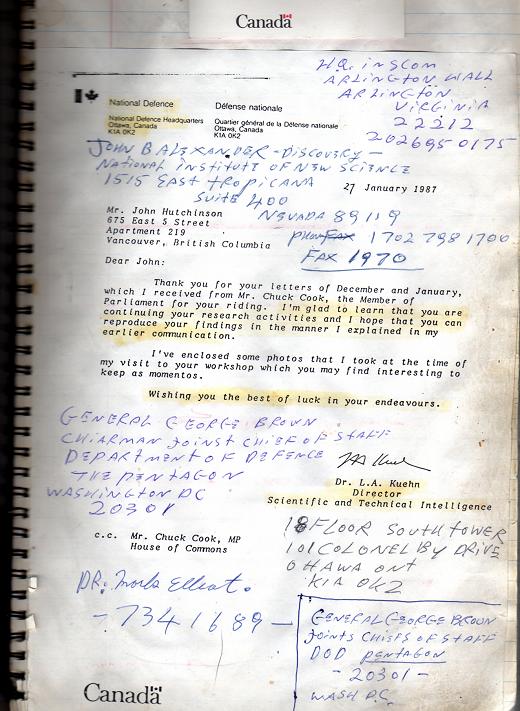 Canada
H.Q. INSCOM
ARLINGTON HALL
ARLINGTON
VIRGINIA
22212
202 695 0175
National Defence
Défense nationale
National Defence Headquarters
Ottawa, Canada
K1A 0K2
Quartier général de la Défense nationale
Ottawa, Canada
K1A 0K2
JOHN B ALEXANDER - DISCOVERY -
NATIONAL INSTITUTE OF NEW SCIENCE
1515 EAST TROPICANA
SUITE 400
NEVADA 89119
27 January 1987
Mr. John Hutchinson
675 East 5 Street
Apartment 219
Vancouver, British Columbia
1702 798 1700
FAX 1970
Dear John:
Thank you for your letters of December and January,
which I received from Mr. Chuck Cook, the Member of
Parliament for your riding. I'm glad to learn that you are
continuing your research activities and I hope that you can
reproduce your findings in the manner I explained in my
earlier communication.
I've enclosed some photos that I took at the time of
my visit to your workshop which you may find interesting to
keep as momentos.
Wishing you the best of luck in your endeavours.
GENERAL GEORGE BROWN
CHIARMAN JOINST CHIEF OF STAFF
DEPARTMENT OF DEFENCE
THE PENTAGON
WASHINGTON DC
20301
Dr. L.A. Kuehn
Director
Scientific and Technical Intelligence
c.c. Mr. Chuck Cook, MP
House of Commons
18 FLOOR SOUTH TOWER
101 COLONEL BY DRIVE
OTTAWA ONT
K1A 0K2
DR:
- 7341689 -
GENERAL GEORGE BROWN
JOINTS CHIEFS OF STAFF
DOD PENTAGON
- 20301 -
WASH D.C.
Canada